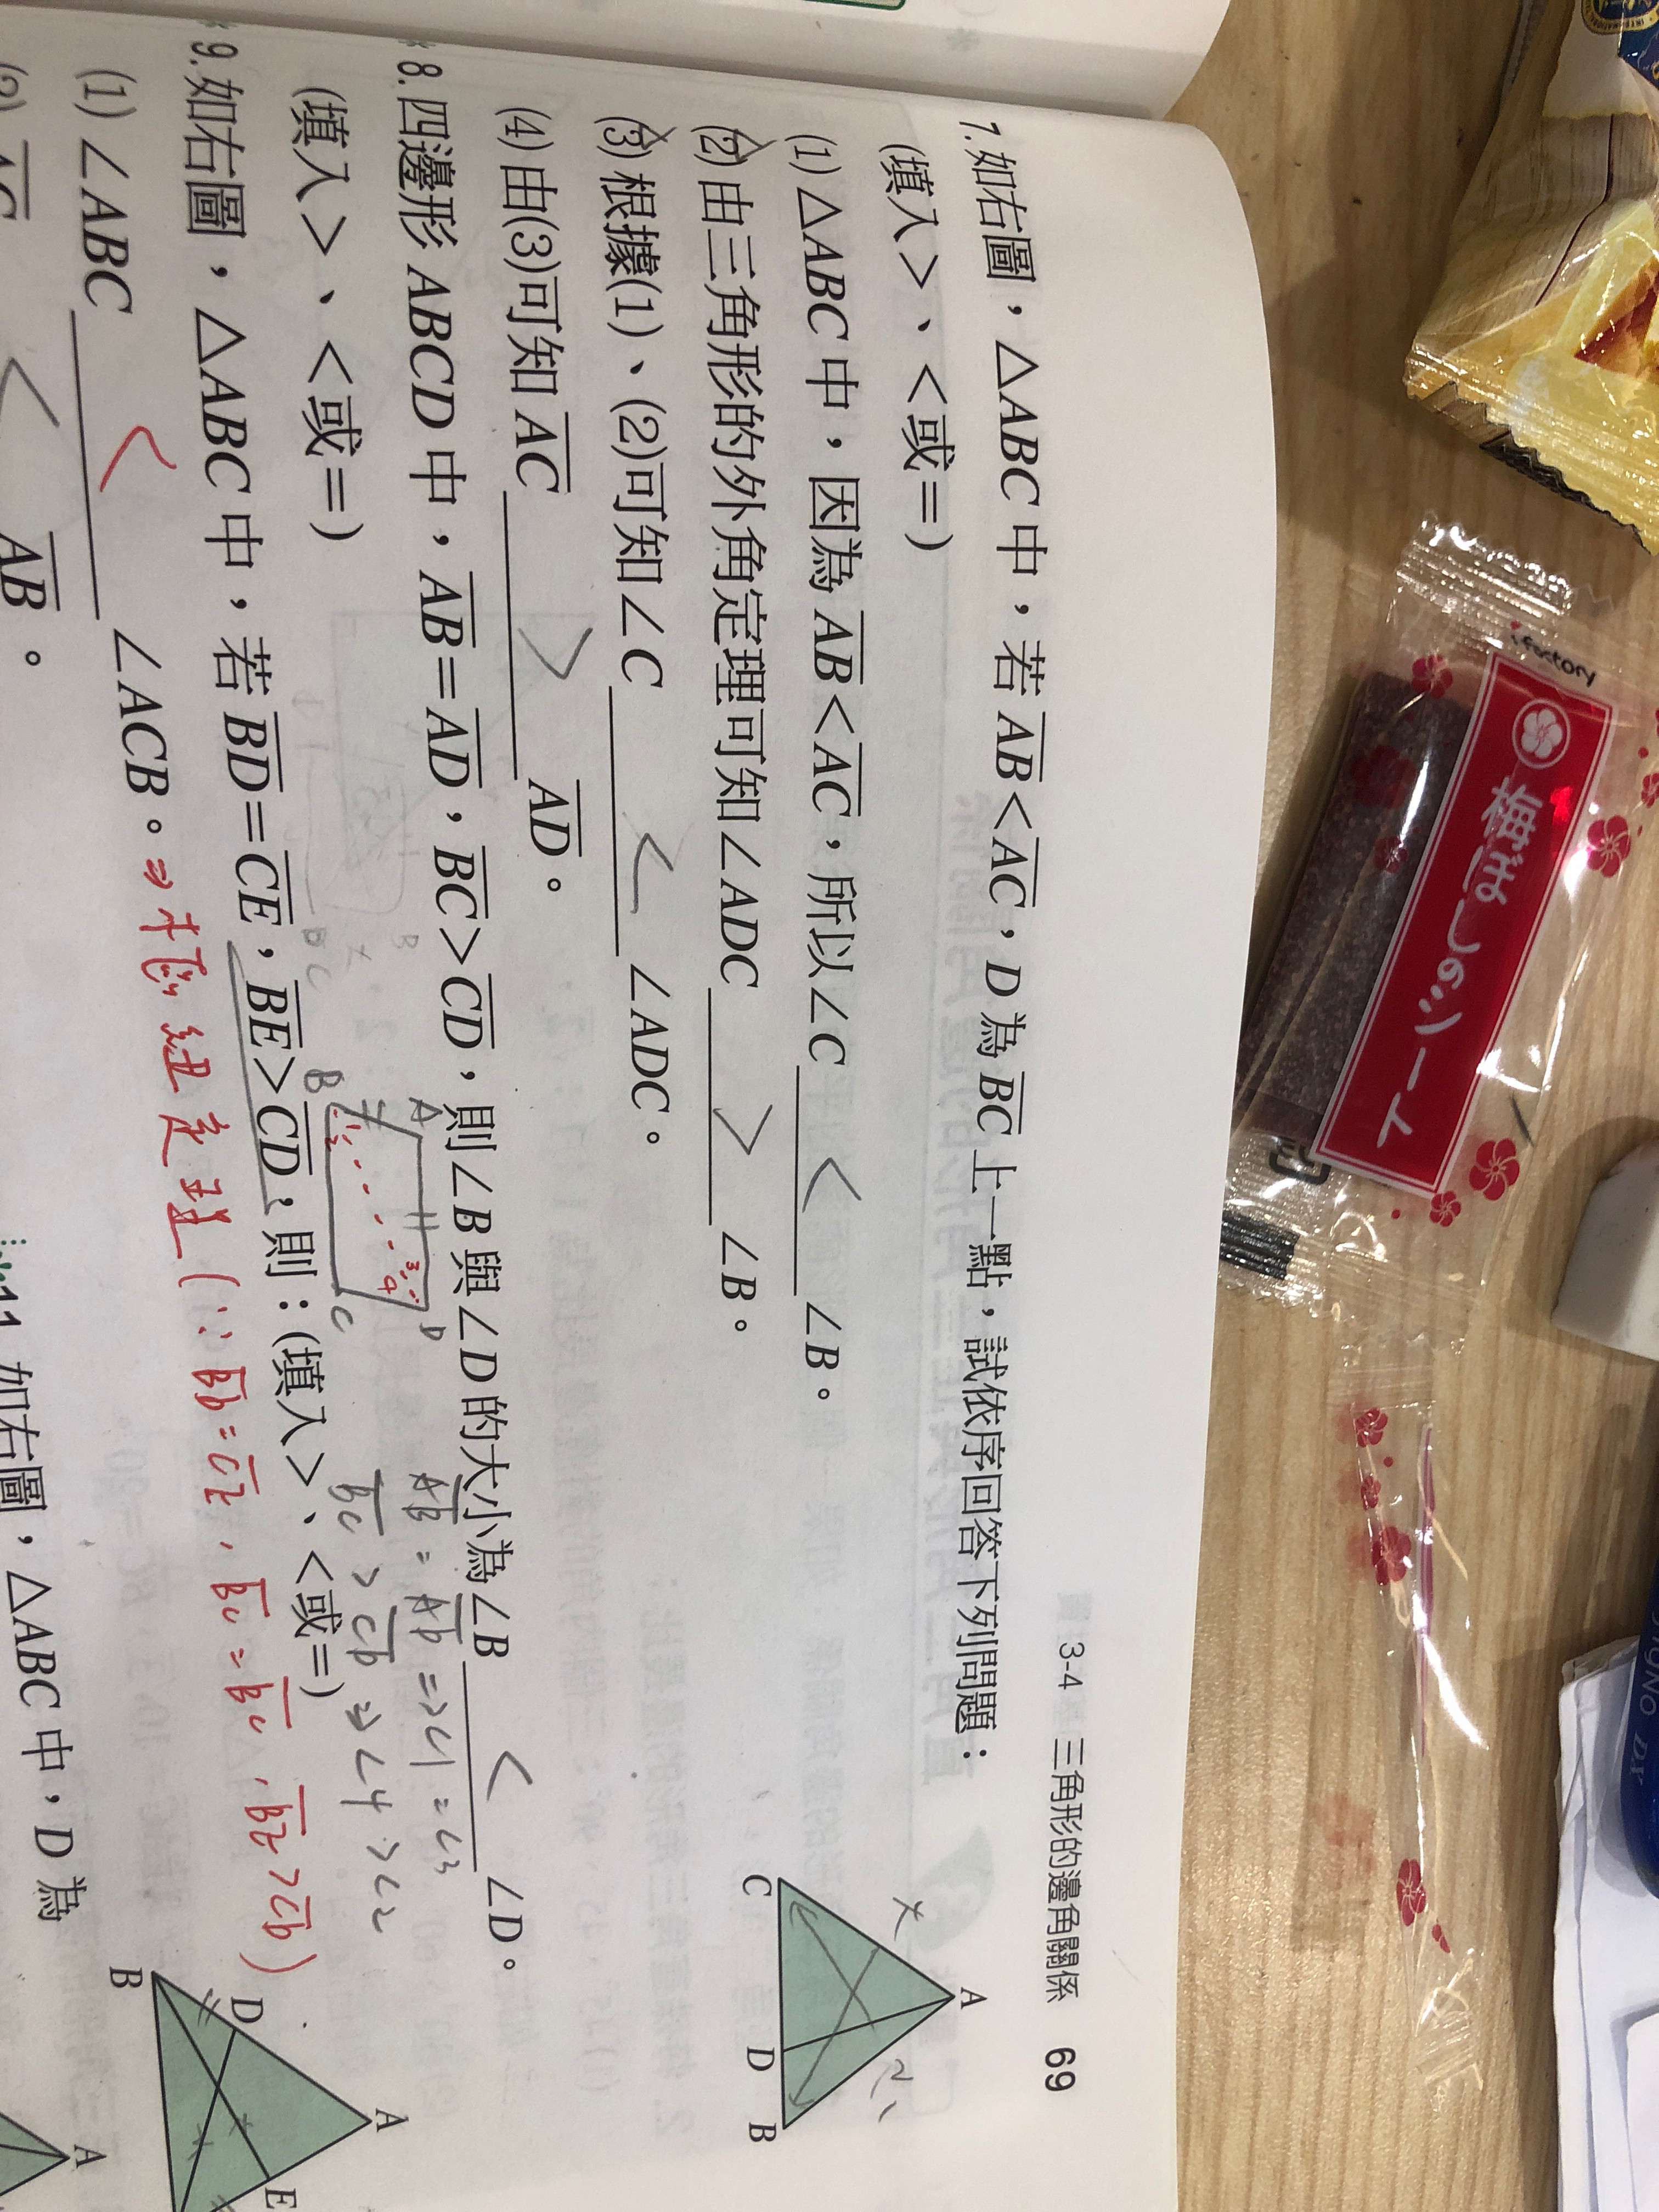 3-4 三角形的邊角關係 69
7.如右圖，△ABC中，若AB<AC，D為BC上一點，試依序回答下列問題：
(填入>、<或=)
(1)△ABC中，因為AB<AC，所以∠C < ∠B。
(2)由三角形的外角定理可知∠ADC > ∠B。
(3)根據(1)、(2)可知∠C < ∠ADC。
(4)由(3)可知AC > AD。
A
C
D
B
*8.四邊形ABCD中，AB=AD，BC>CD，則∠B與∠D的大小為∠B < ∠D。
(填入>、<或=)
A
D
B
C
AB = AD ⇒ ∠1 = ∠3
BC > CD ⇒ ∠4 > ∠2
*9.如右圖，△ABC中，若BD=CE，BE>CD，則：(填入>、<或=)
(1)∠ABC < ∠ACB。⇒ 樞紐定理 (∵ BD = CE, BC = BC, BE > CD)
(2)AC < AB。
A
D
E
B
11.如右圖，△ABC中，D為
A
i factory
梅ぼしのシート